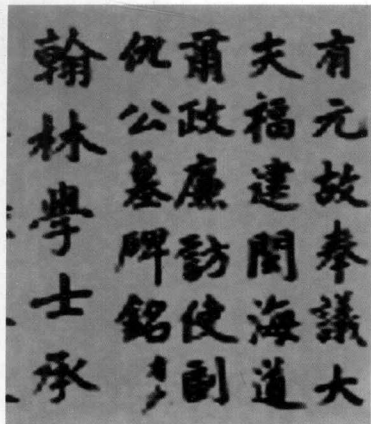 有元故奉議大
夫福建閩海道
肅政廉訪使副
仇公墓碑銘有序
翰林學士承